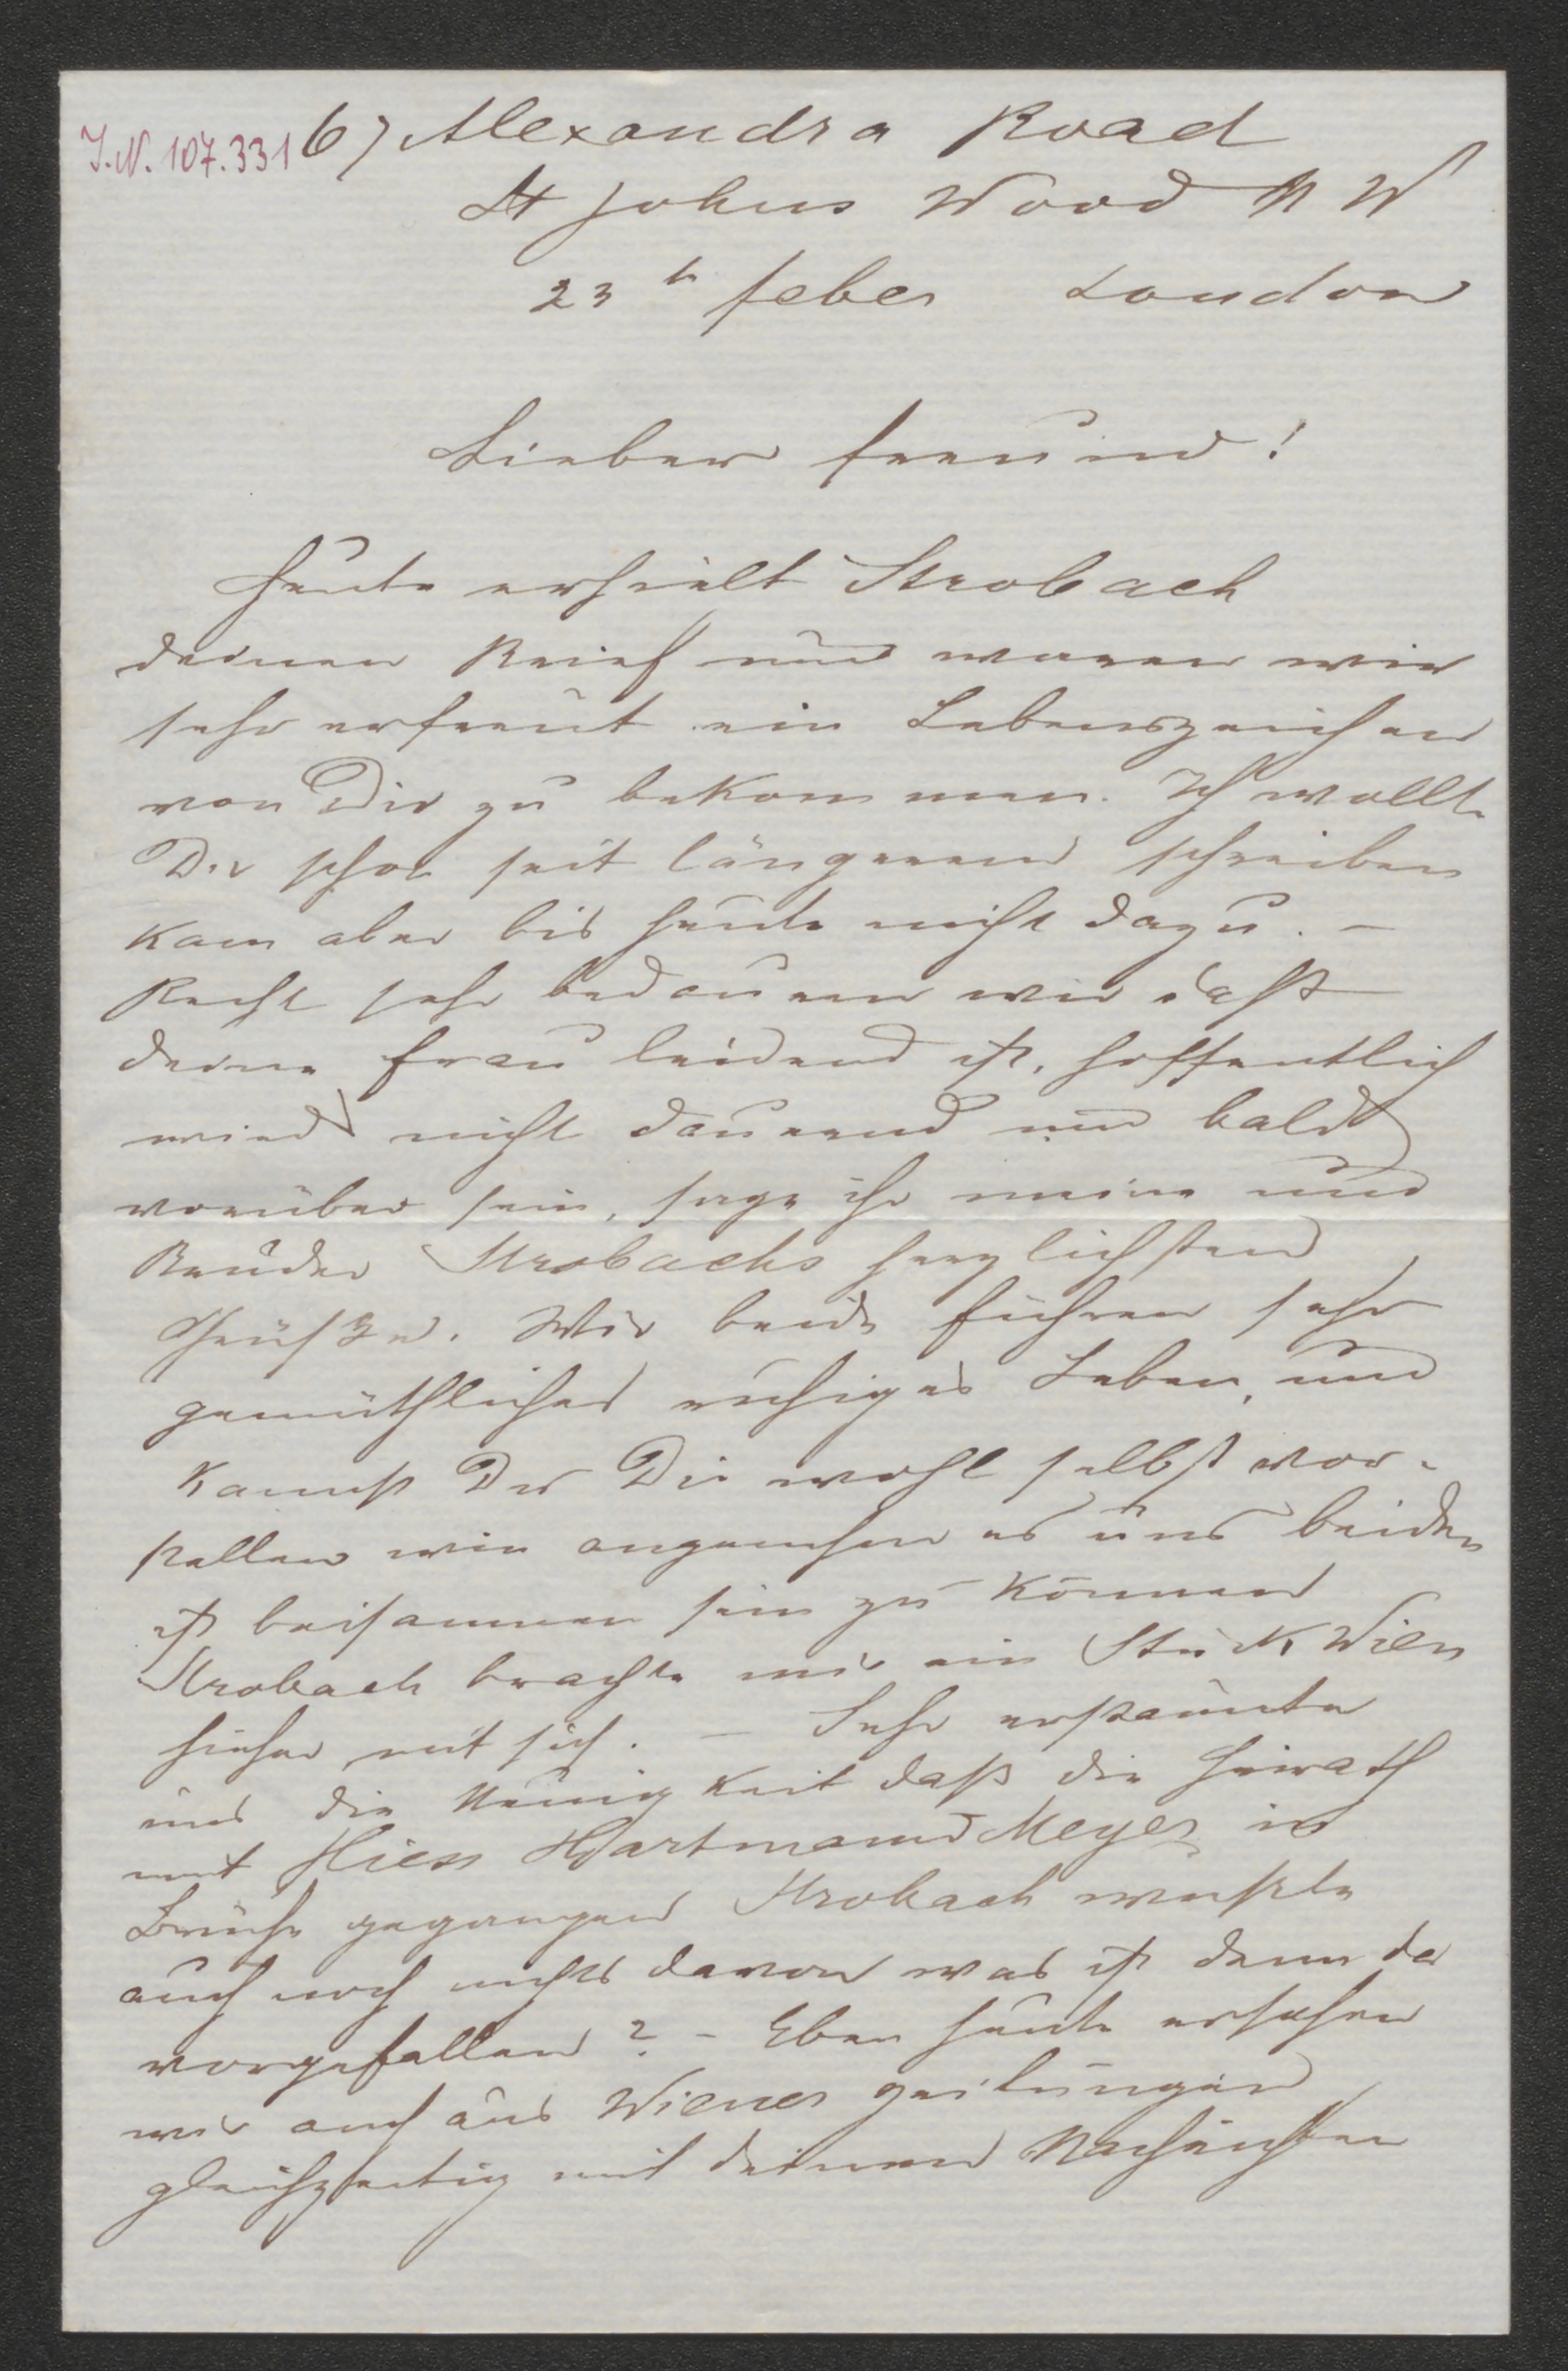 J.N. 107.331
67 Alexandra Road
St Johns Wood N W
23t feber London
Lieber Freund!
Heute erhielt Strobach
deinen Brief und waren wir
sehr erfreut ein Lebenszeichen
von Dir zu bekommen. Ich wollte
Dir schon seit längerem schreiben
kam aber bis heute nicht dazu. –
Recht sehr bedauern wir daß
deine Frau leidend ist, hoffentlich
wird nicht dauernd und bald
vorüber sein, sage ihr meine und
Bruder Strobachs herzlichsten
Grüße. Wir beide führen sehr
gemüthliches ruhiges Leben, und
kannst Du Dir wohl selbst vor-
stellen wie angenehm es uns beiden
ist beisammen sein zu können
Strobach brachte mir ein Stück Wien
hieher mit sich. – Sehr erstaunte
uns die Neuigkeit daß die Heirath
mit Hartmann Meyer in
Brüche gegangen Strobach wußte
auch noch nichts davon was ist denn da
vorgefallen? – Eben heute ersehen
wir auch aus Wiener Zeitungen
gleichzeitig mit deinen Nachrichten